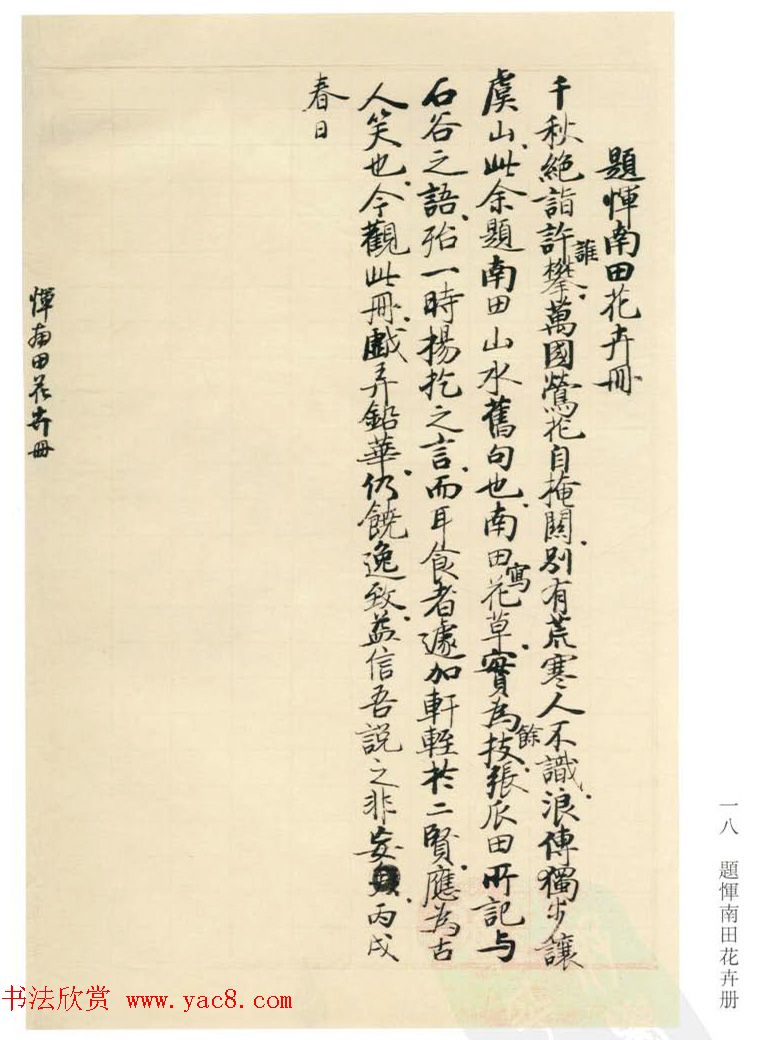 題惲南田花卉冊
千秋絕詣許誰攀萬國鶯花自掩關別有荒寒人不識浪傳獨步讓
虞山此余題南田山水舊句也南田寫花草實為餘技張瓜田所記与
石谷之語殆一時揚扢之言而耳食者遽加軒輊於二賢應為古
人笑也今觀此冊戲弄鉛華仍饒逸致益信吾說之非妄丙戌
春日
惲南田花卉冊
一八 題惲南田花卉册
书法欣赏 www.yac8.com